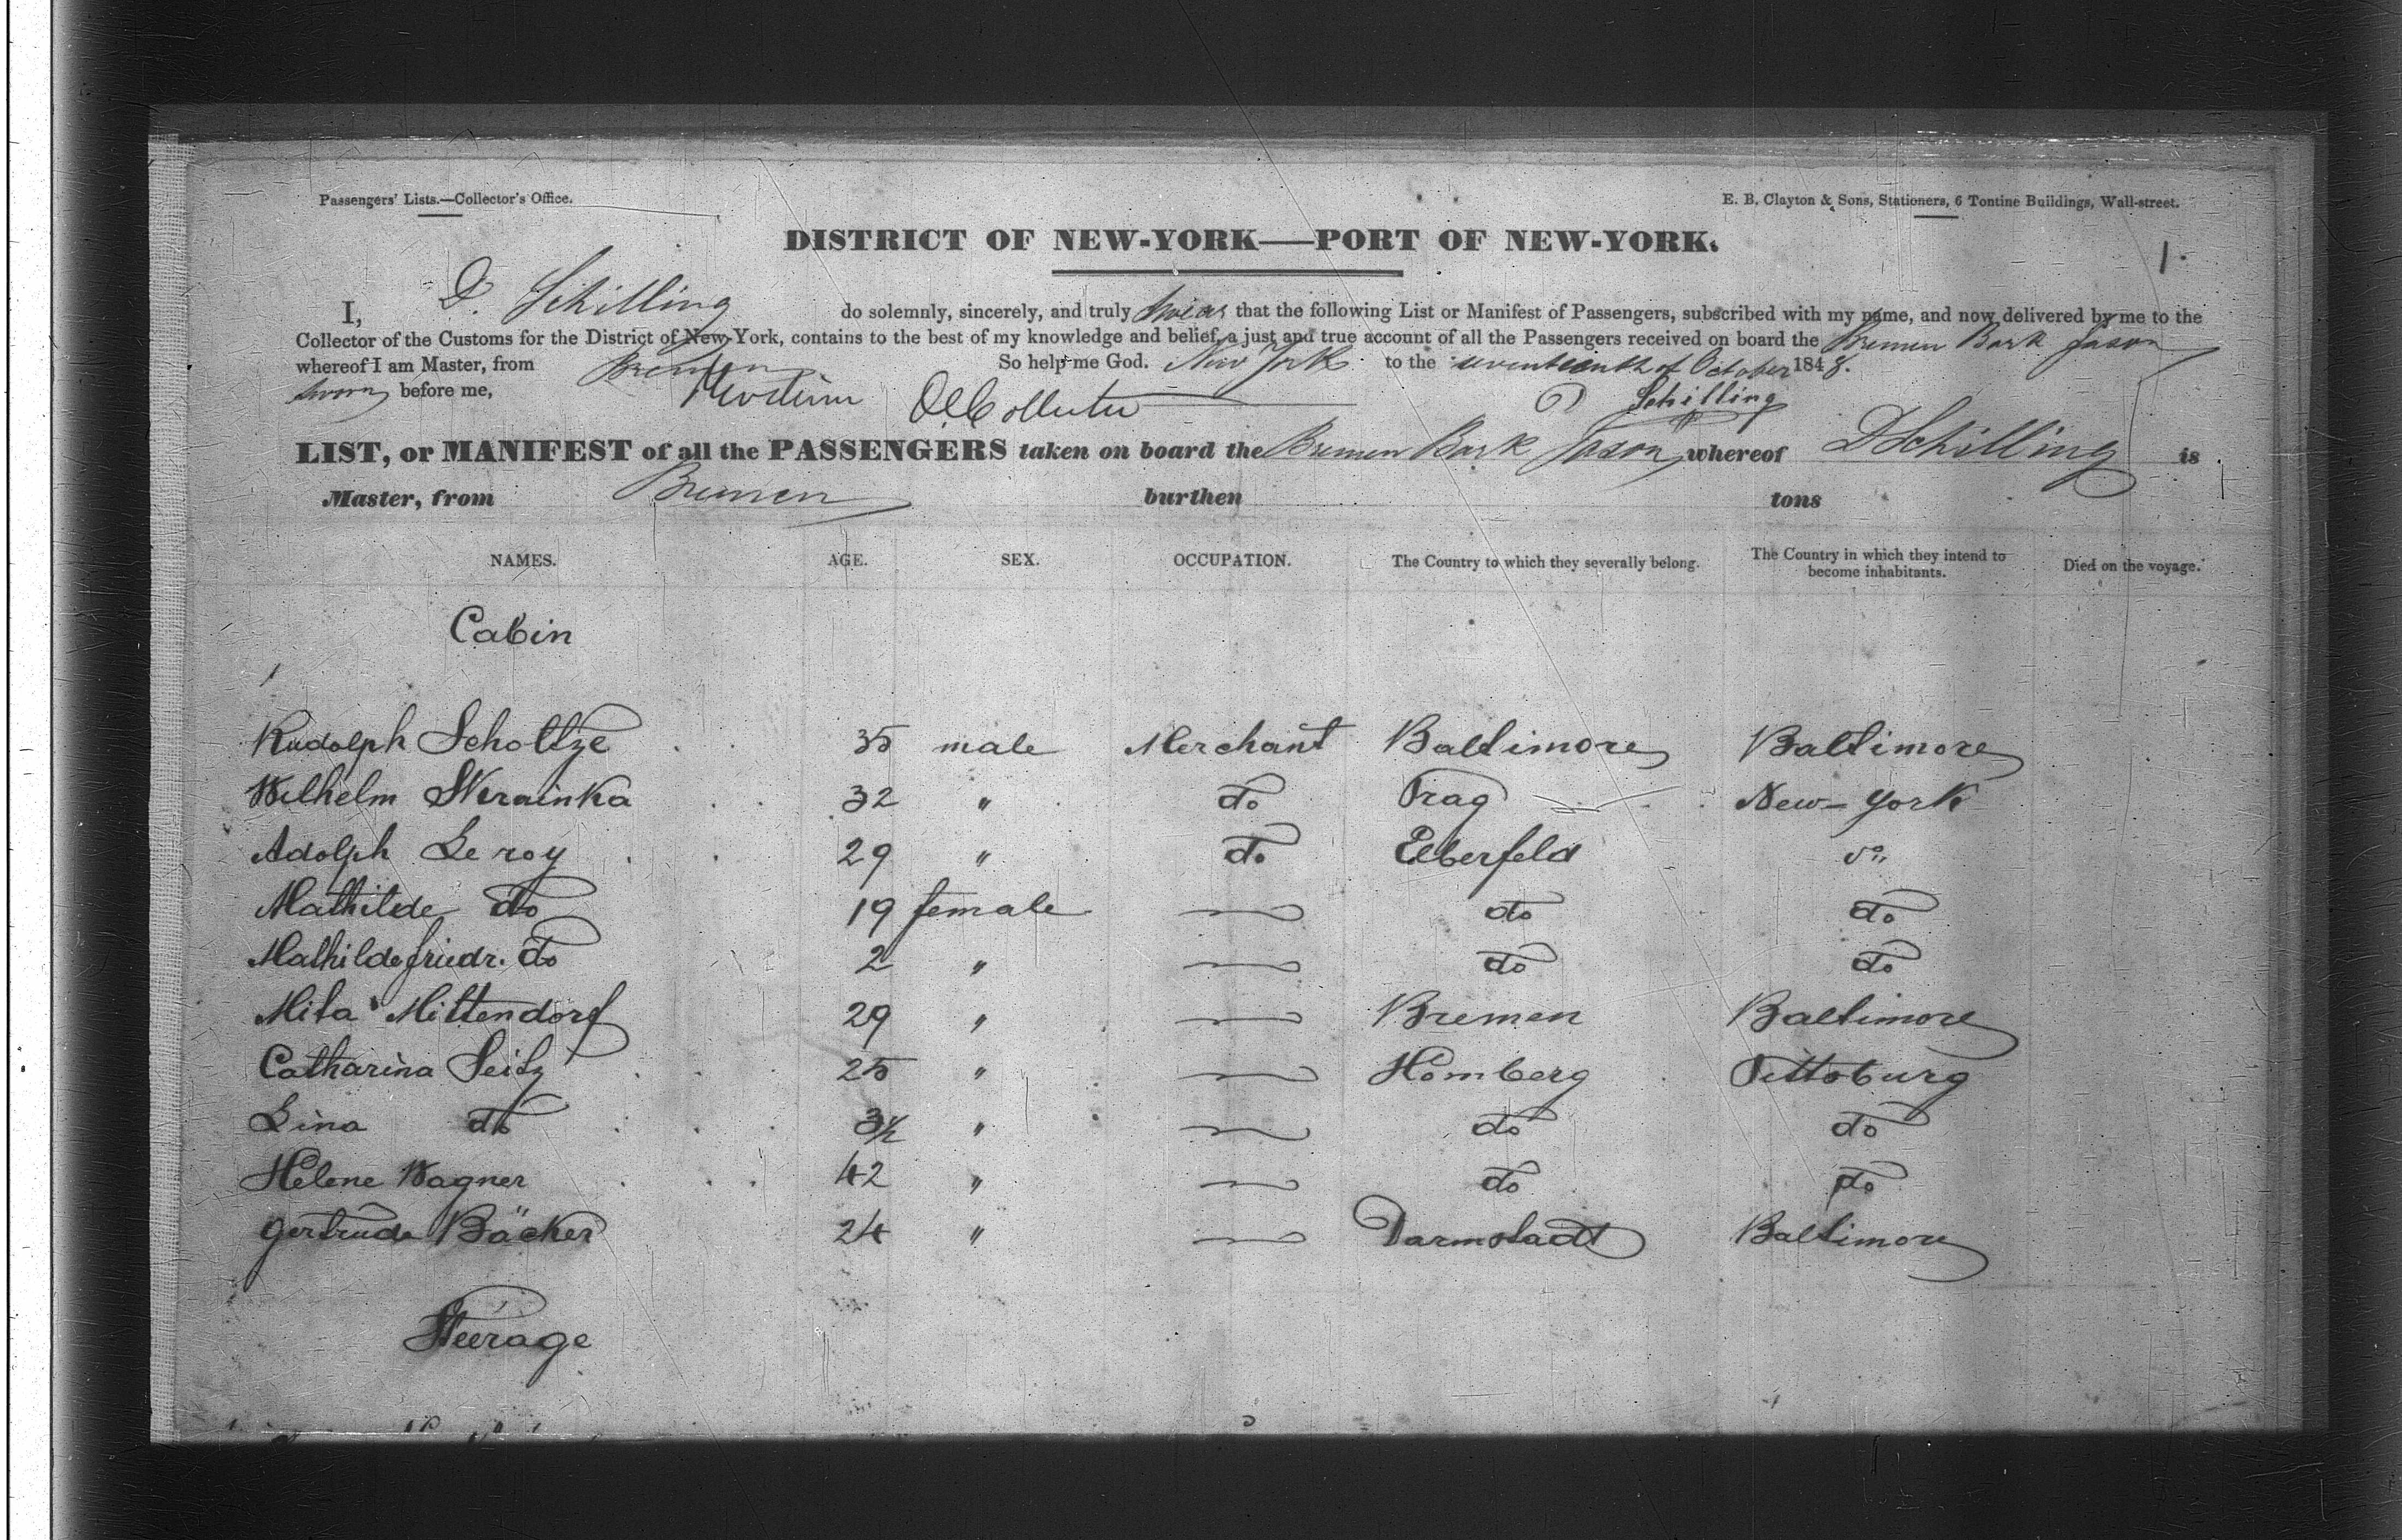 Passengers' Lists.—Collector's Office. E. B. Clayton & Sons, Stationers, 6 Tontine Buildings, Wall-street.
DISTRICT OF NEW-YORK—PORT OF NEW-YORK.
1.
I, D. Schilling do solemnly, sincerely, and truly swear that the following List or Manifest of Passengers, subscribed with my name, and now delivered by me to the
Collector of the Customs for the District of New-York, contains to the best of my knowledge and belief, a just and true account of all the Passengers received on board the Bremen Bark Jason
whereof I am Master, from Bremen So help me God. New York to the seventeenth of October 1848.
sworn before me, D Schilling
LIST, or MANIFEST of all the PASSENGERS taken on board the Bremen Bark Jason whereof D Schilling is
Master, from Bremen burthen tons
NAMES. AGE. SEX. OCCUPATION. The Country to which they severally belong. The Country in which they intend to become inhabitants. Died on the voyage.
Cabin
Rudolph Scholtze 35 male Merchant Baltimore Baltimore
Wilhelm Skrainka 32 " do Prag New-York
Adolph Le roy 29 " do Elberfeld do
Mathilde do 19 female — do do
Mathilde friedr. do 2 " — do do
Mita Mittendorf 29 " — Bremen Baltimore
Catharina Seitz 25 " — Homberg Pittsburg
Lina do 3½ " — do do
Helene Wagner 42 " — do do
Gertrude Bäcker 24 " — Darmstadt Baltimore
Steerage